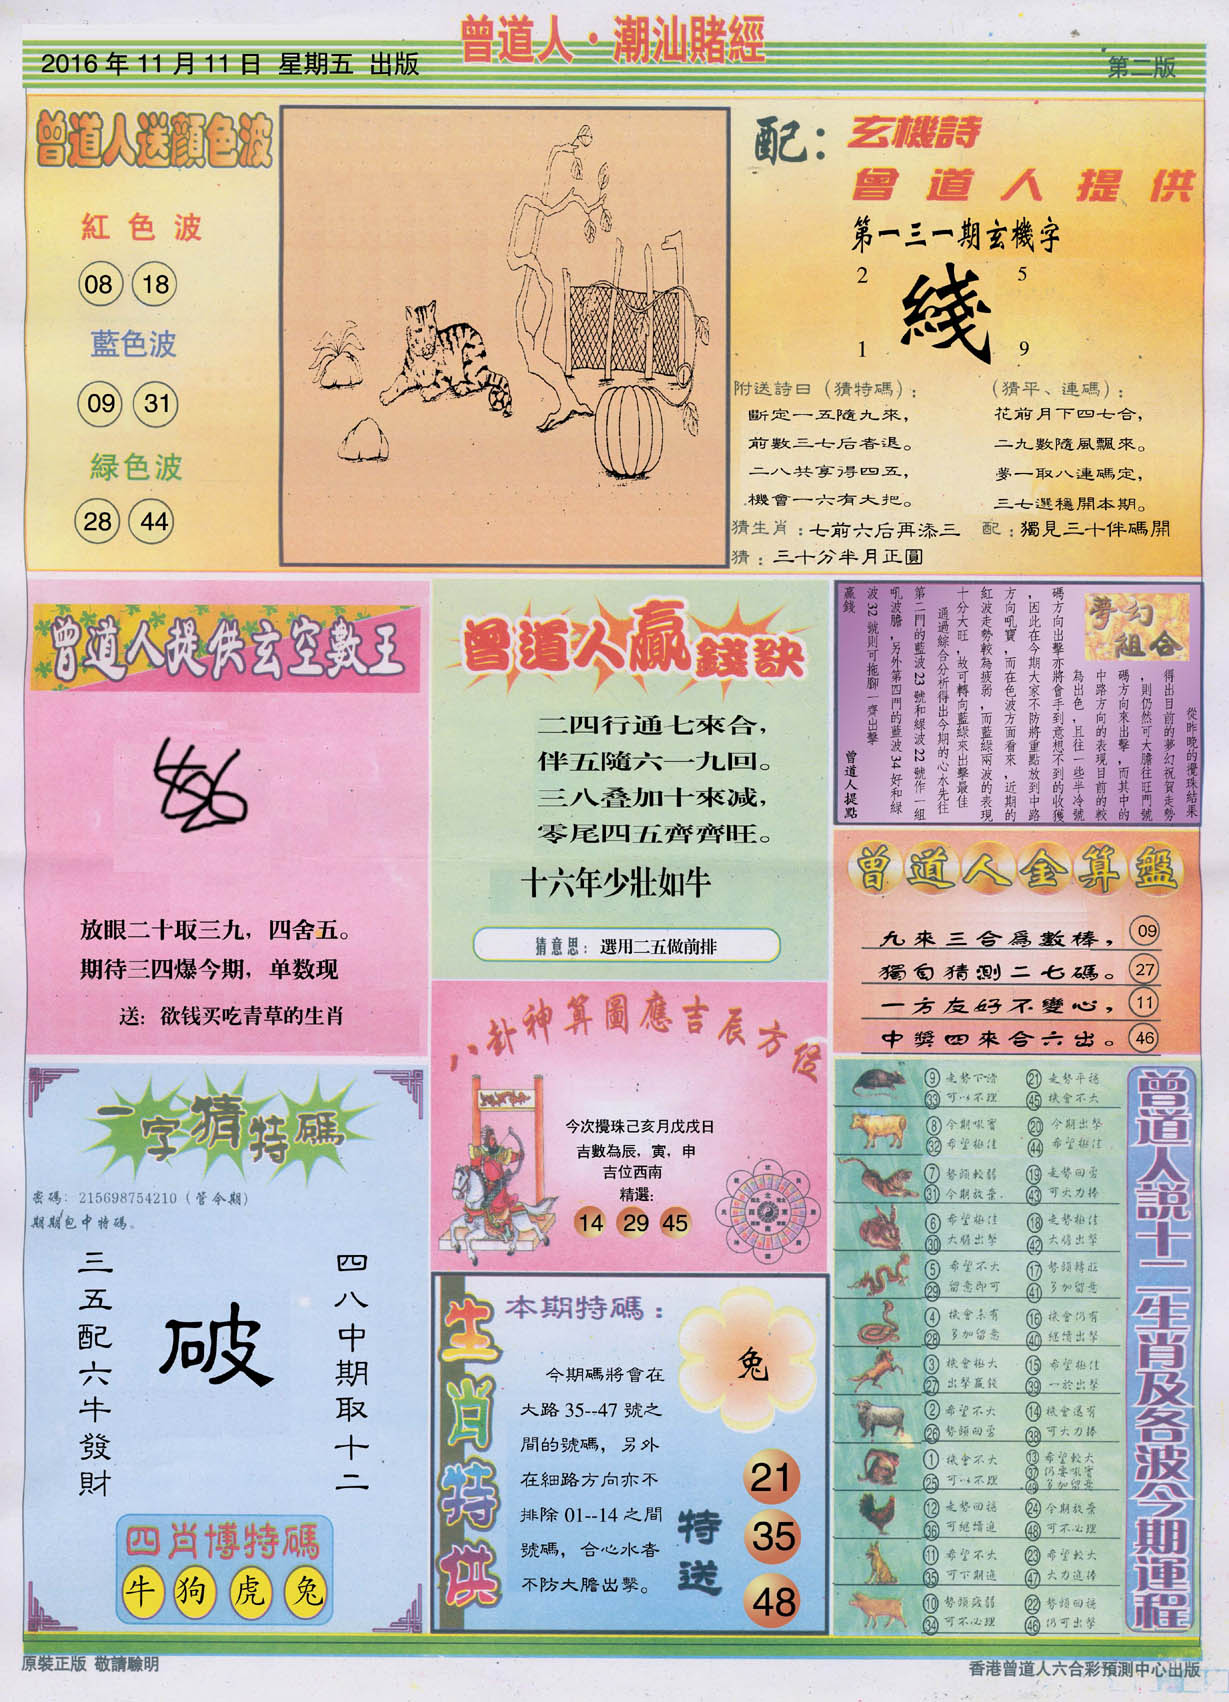 曾道人·潮汕賭經
2016年11月11日 星期五 出版
第二版
曾道人送顏色波
紅色波
08 18
藍色波
09 31
緑色波
28 44
配：
玄機詩
曾道人提供
第一三一期玄機字
2 5
綫
1 9
附送詩日（猜特碼）：
斷定一五隨九來，
前數三七后者退。
二八共享得四五，
機會一六有大把。
（猜平、連碼）：
花前月下四七合，
二九數隨風飄來。
夢一取八連碼定，
三七選穩開本期。
猜生肖：七前六后再添三
配：獨見三十伴碼開
猜：三十分半月正圓
曾道人提供玄空數王
放眼二十取三九，四舍五。
期待三四爆今期，单数现
送：欲钱买吃青草的生肖
曾道人贏錢訣
二四行通七來合，
伴五隨六一九回。
三八叠加十來减，
零尾四五齊齊旺。
十六年少壯如牛
猜意思：選用二五做前排
夢幻組合
從昨晚的攪珠結果
得出目前的夢幻祝賀走勢
，則仍然可大膽往旺門號
碼方向來出擊，而其中的
中路方向的表現目前的較
為出色，且往一些半冷號
碼方向出擊亦將會手到意想不到的收獲
，因此在今期大家不防將重點放到中路
方向吼寶，而在色波方面看來，近期的
紅波走勢較為疲弱，而藍綠兩波的表現
十分大旺，故可轉向藍綠來出擊最佳
通過綜合分析得出今期的心水先往
第二門的藍波23號和緑波22號作一組
吼波膽，另外第四門的藍波34好和緑
波32號則可拖腳一齊出擊
贏錢
曾道人提點
曾道人金算盤
九來三合爲數棒， 09
獨自猜測二七碼。 27
一方友好不變心， 11
中獎四來合六出。 46
八卦神算圖應吉辰方位
今次攪珠己亥月戊戌日
吉數為辰，寅，申
吉位西南
精選：
14 29 45
一字猜特碼
密碼：215698754210（管今期）
期期包中特碼。
三五配六牛發財
破
四八中期取十二
四肖博特碼
牛 狗 虎 兔
生肖特供
本期特碼：
兔
今期碼將會在
大路35--47號之
間的號碼，另外
在細路方向亦不
排除01--14之間
號碼，合心水者
不防大膽出擊。
特送
21
35
48
曾道人説十二生肖及各波今期運程
9 走勢下滑 21 走勢平穩
33 可以不理 45 機會不大
8 今期吼實 20 今期出擊
32 希望極佳 44 希望極佳
7 勢頭較弱 19 走勢回勇
31 今期放棄 43 可大力捧
6 希望極佳 18 走勢極佳
30 大膽出擊 42 大膽出擊
5 希望不大 17 勢頭轉旺
29 留意即可 41 多加留意
4 機會未有 16 機會仍有
28 多加留意 40 繼續出擊
3 機會極大 15 希望極佳
27 出擊贏錢 39 一於出擊
2 希望不大 14 機會還有
26 勢頭回勇 38 可大力捧
1 機會不大 13 希望較大
25 可以不理 37 仍要吼實
49 多加留意
12 走勢回穩 24 今期放棄
36 可繼續追 48 可不必理
11 希望不大 23 希望較大
35 可下期追 47 大力追捧
10 勢頭疲弱 22 勢頭回穩
34 可不必理 46 仍可出擊
原裝正版 敬請驗明
香港曾道人六合彩預測中心出版